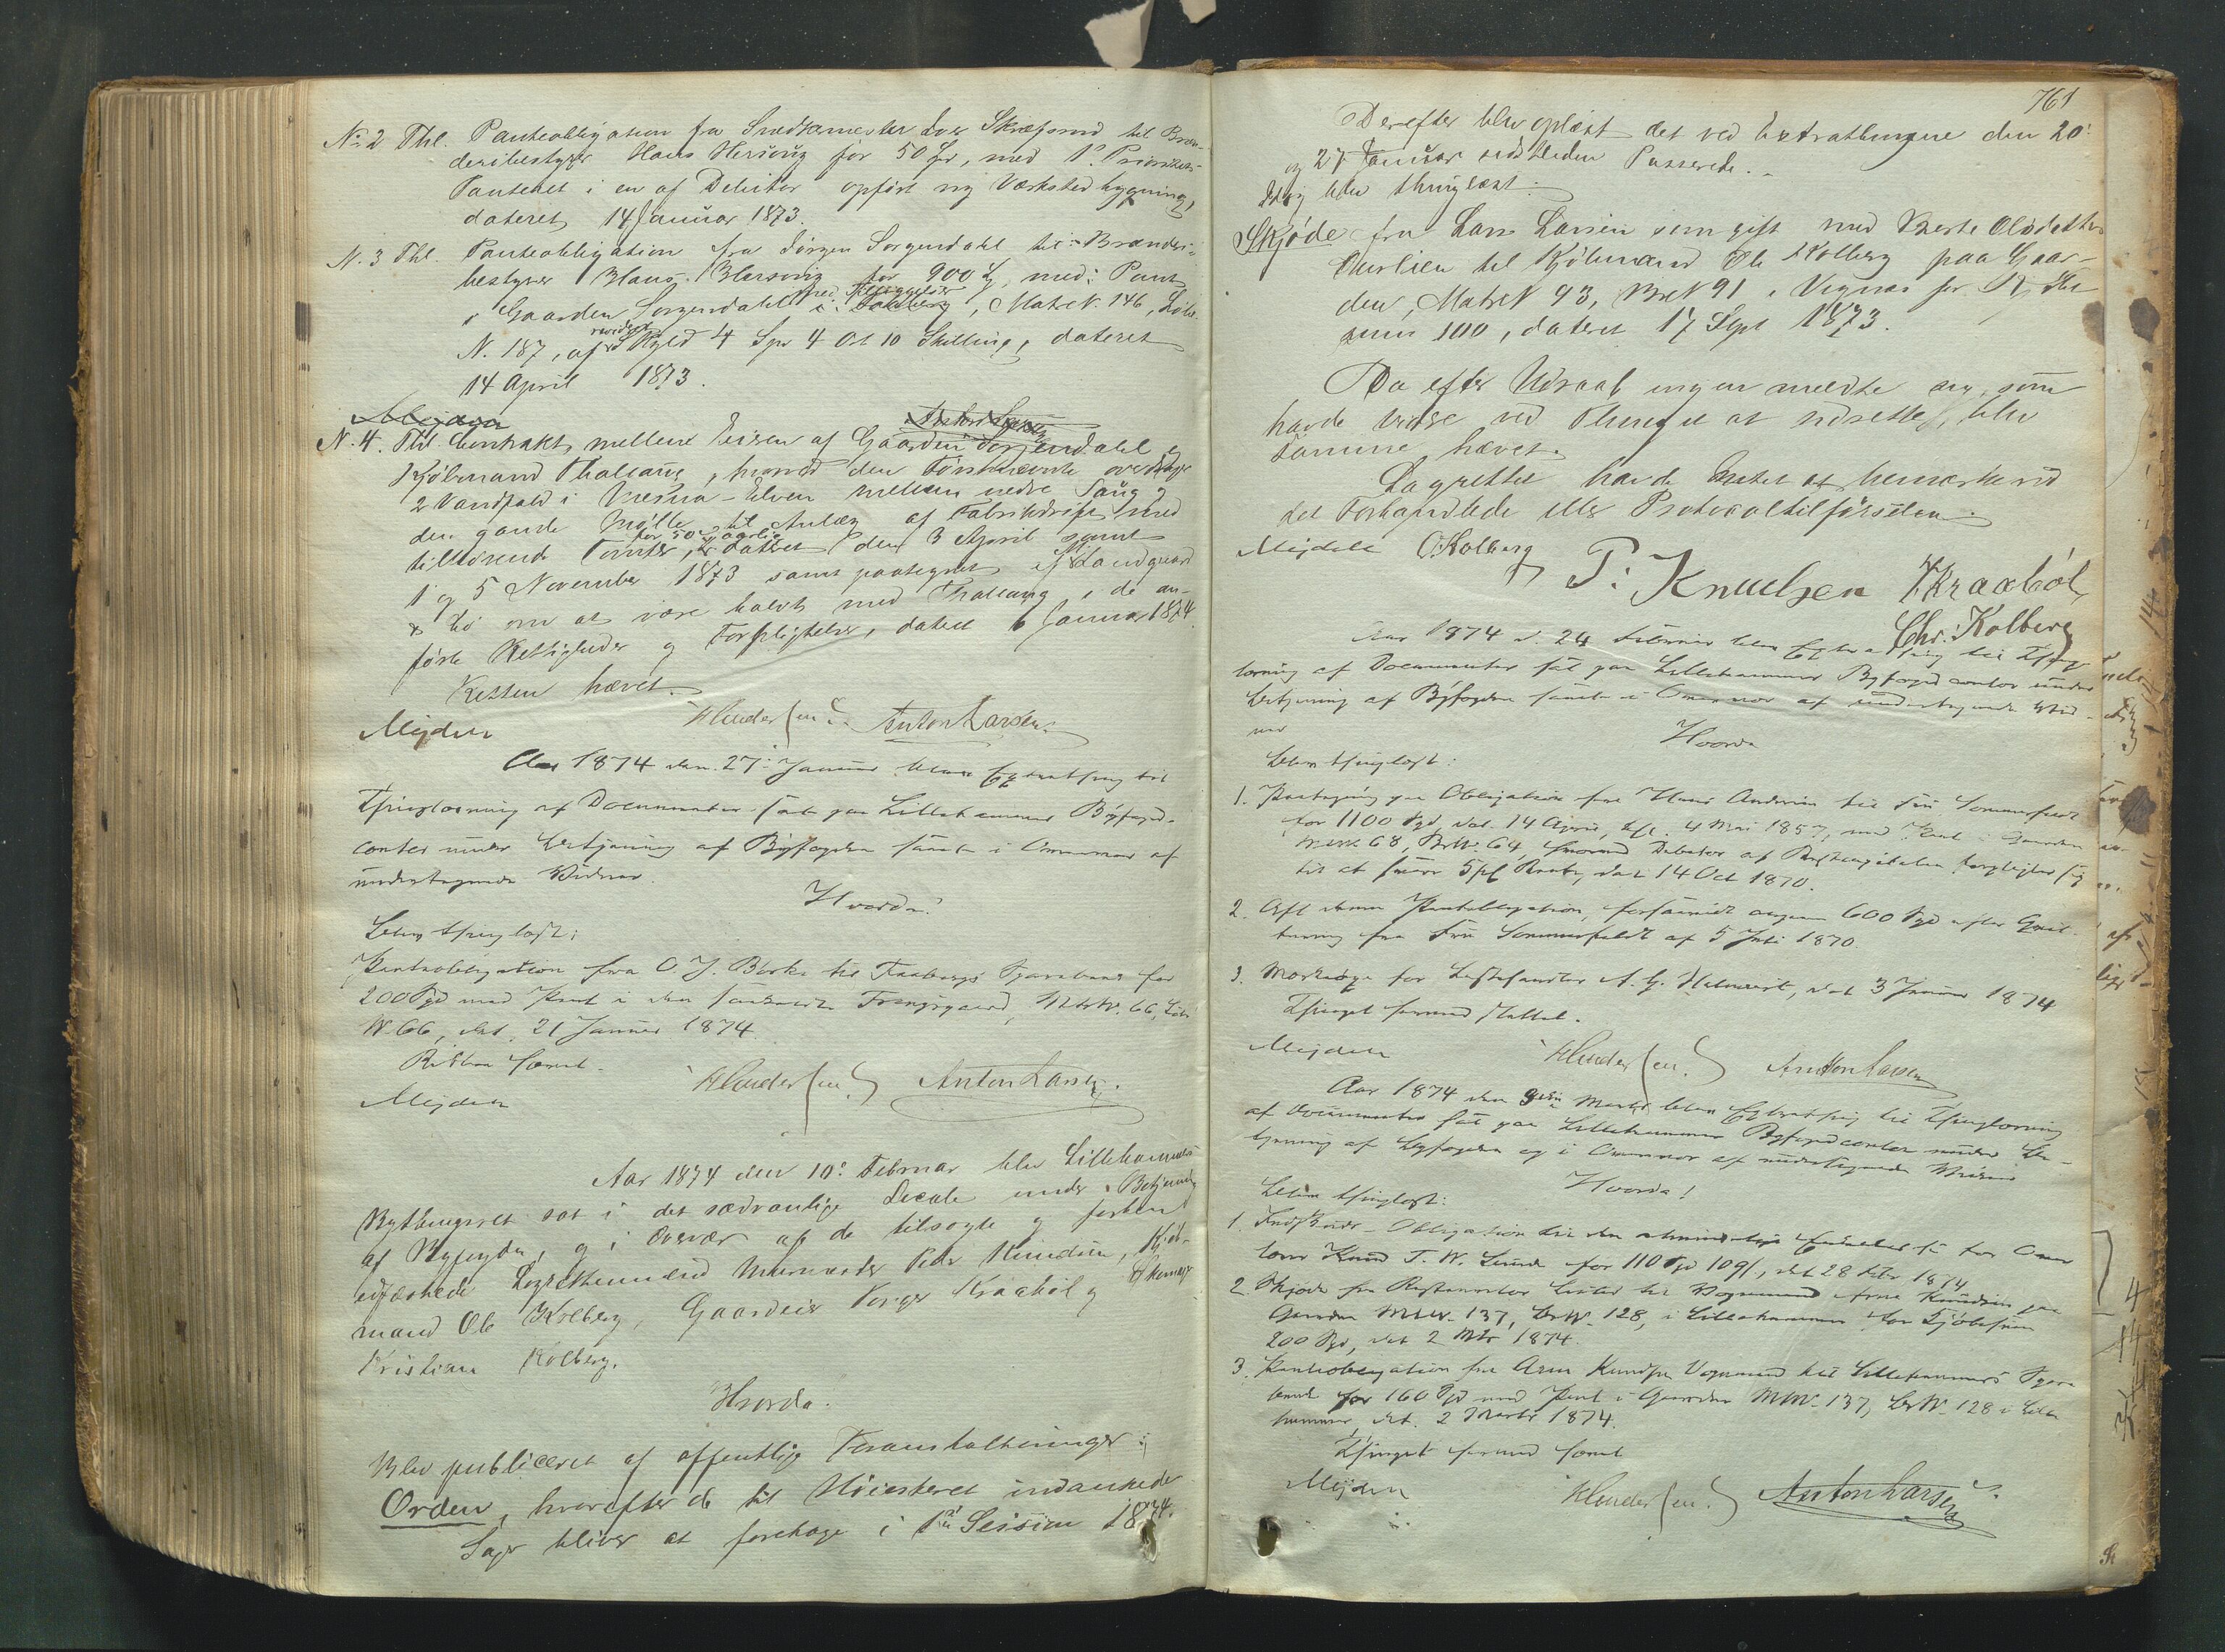 No 2 Thl. Panteobligation fra Snedkermester Iver Skræfsrud til Bræn-
deribestyrer Hans Hersoug for 50 Spd, med 1ste Prioritets
Panteret i en af Debitor opført ny Værkstedbygning,
dateret 14 Januar 1873.
N. 3 Thl. Panteobligation fra Jörgen Sorgendahl til Brænderi-
bestyrer Hans Hersoug for 900 Spd, med Pant
i Gaarden Sorgendahl med Tilliggelser i Faaberg, Matr N. 146, Löbe
N. 187, af revideret Skyld 4 Spd 4 Ort 10 Skilling, dateret
14 April 1873.
Mejdell Anton Larsen
N. 4. Thl. Contrakt mellem Eieren af Gaarden Sorgendahl og
Kjöbmand Thallaug, hvorved den Förstnævnte overdrager
2 Vandfald i Mesna-Elven mellem nedre Saug og
den gamle Mølle til Anlæg af Fabrikdrift med
tilhørende Tomter, for 50 aarlig, dateret den 3 April samt
1 og 5 November 1873 samt paategnet af Landhandl
om at være halvt med Thallaug i de an-
förte Rettigheder og Forpligtelser, dateret 6 Januar 1874.
Retten hævet.
Mejdell H Gundersen Anton Larsen
Aar 1874 den 27 Januar blev Extrathing til
Thinglæsning af Documenter sat paa Lillehammers Byfoged-
contor under Betjening af Byfogden samt i Overvær af
undertegnede Vidner.
Hvorda:
Blev thinglæst:
Panteobligation fra O. J. Borke til Faabergs Sparebank for
200 Spd med Pant i den saakaldte Frengsgaard, MatrN. 66, Löbe
N. 66, dat. 21 Januar 1874
Retten hævet.
Mejdell H Gundersen Anton Larsen.
Aar 1874 den 10. Februar blev Lillehammers
Bythingsret sat i det sædvanlige Locale under Betjening
af Byfogden, og i Overvær af de tilsagte og forhen
edfæstede Lagrettemænd Peder Knudsen, Kjöb-
mand Ole Kolberg, Gaardeier Torger Kraabøl og Skomager
Kristian Kolberg.
Hvorda.
Blev publiceret af offentlige Foranstaltninger:
Orden, hvorefter de til Höiesteret indankede
Sager bliver at foretage i 1ste Session 1874.
761
Derefter blev oplæst det ved Extrathingene den 20.
og 27 Januar sidstleden Passerede.
Og blev thinglæst:
Skjöde fra Lars Larsen som gift med Berte Olsdatter
Ourlien til Kjöbmand Ole Kolberg paa Gaar-
den, MatrN 93, BrN 91 i Vignæs for Kjöbe
sum 100, dateret 17 Sept 1873.
Da efter Udraab ingen meldte sig, som
havde videre ved Thinget at udrette, blev
samme hævet.
Lagrettet havde Intet at bemærke ved
det Forhandlede eller Protocoltilförselen.
Mejdell O Kolberg P. Knudsen T Kraaböl
Chr. Kolberg
Aar 1874 d. 24 Februar blev Extrathing til Thing-
læsning af Documenter sat paa Lillehammers Byfogedcontor under
Betjening af Byfogden samt i Overvær af undertegnede Vid-
ner
Hvorda
Blev thinglæst:
1. Paategning paa Obligation fra Hans Andersen til Fru Sommerfeldt
for 1100 Spd, dat. 14 April, thl. 4 Mai 1857, med Pant i Gaarden
MatrN. 68, BrN. 64, hvorved Debitor af Restcapitalen forpligter sig
til at svare 5 pCt Rente, dat. 14 Oct 1870.
2. Afl. denne Panteobligation, forsaavidt angaar 600 Spd efter Qvit-
tering fra Fru Sommerfeldt af 5 Juli 1870.
3. Markeds for A. G. Halvorsen, dat 3 Januar 1874
Thinget hermed sluttet.
Mejdell H Gundersen. Anton Larsen
Aar 1874 den 9de Marts blev Extrathing til Thinglæsning
af Documenter sat paa Lillehammers Byfogedcontor under Be-
tjening af Byfogden og i Overvær af undertegnede Vidner
Hvorda!
Blev thinglæst:
1. Obligation til den almindelige for
T. W. Lunde for 110 Spd 109 s, dat 28 Febr 1874
2. Skjöde fra til Vognmand Arne Knudsen paa
Gaarden MatrN. 137, BrN. 128, i Lillehammer for Kjöbesum
200 Spd, dat 2 Mts 1874.
3. Panteobligation fra Arne Knudsen Vognmand til Lillehammers Spare
bank for 160 Spd med Pant i Gaarden MtrN. 137, BrN. 128 i Lille
hammer, dat. 2 Marts 1874.
Thinget hermed hævet
Mejdell H Gundersen. Anton Larsen